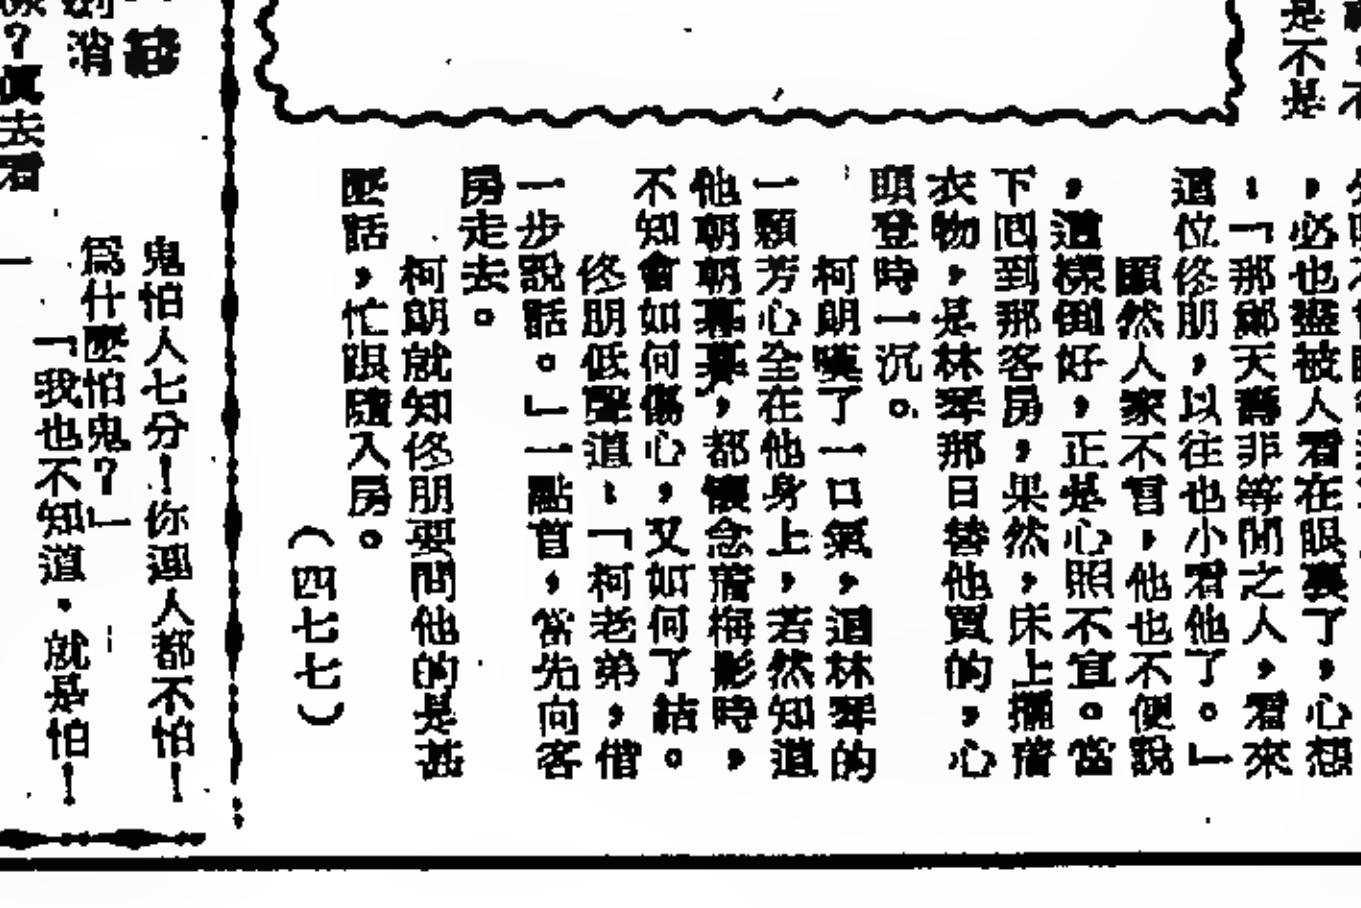 是不是
，必也盡被人看在眼裏了，心想
：「那鄺天壽非等閒之人，看來
這位佟朋，以往也小看他了。」
顯然人家不言，他也不便說
，這樣倒好，正是心照不宣。當
下回到那客房，果然，床上擱着
衣物，是林琴那日替他買的，心
頭登時一沉。
柯朗嘆了一口氣，這林琴的
一顆芳心全在他身上，若然知道
他朝朝暮暮，都懷念着梅影時，
不知會如何傷心，又如何了結。
佟朋低聲道：「柯老弟，借
一步說話。」一點首，當先向客
房走去。
柯朗就知佟朋要問他的是甚
麼話，忙跟隨入房。
（四七七）
消
？真去看
鬼怕人七分！你連人都不怕！
爲什麼怕鬼？」
「我也不知道，就是怕！